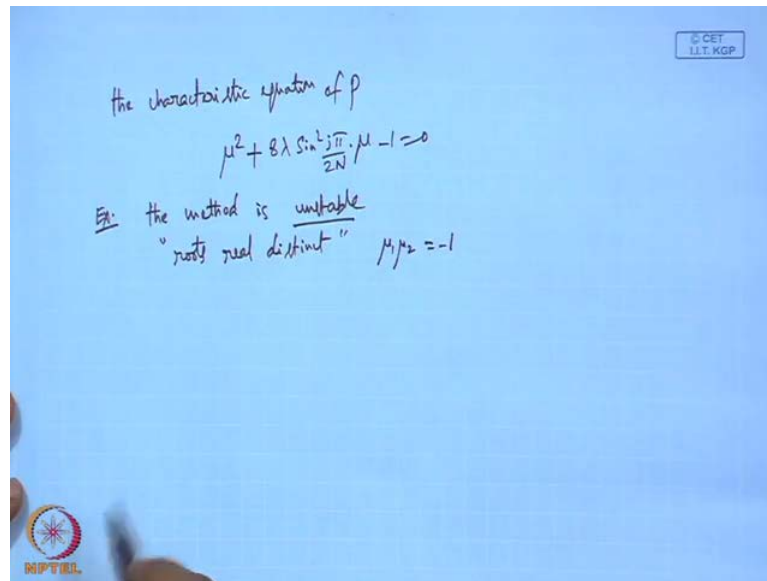 © CET
I.I.T. KGP
the characteristic equation of P
μ² + 8λ Sin² jπ/2N · μ - 1 = 0
Ex: the method is unstable
"roots real distinct" μ₁μ₂ = -1
NPTEL